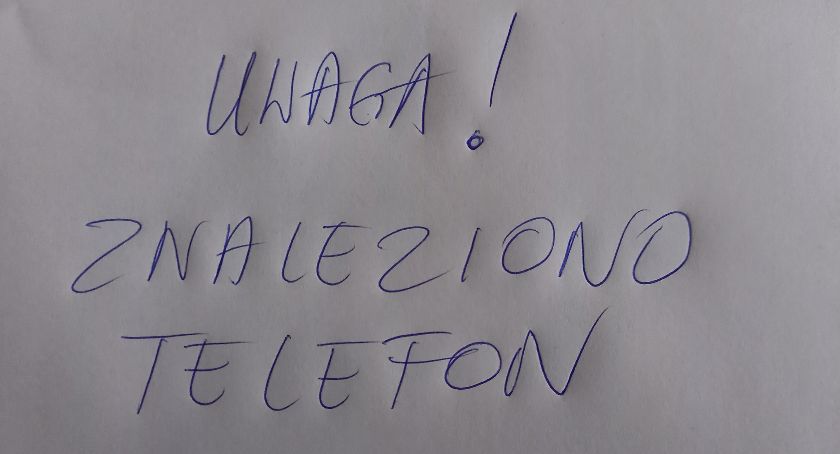 UWAGA!
ZNALEZIONO
TELEFON